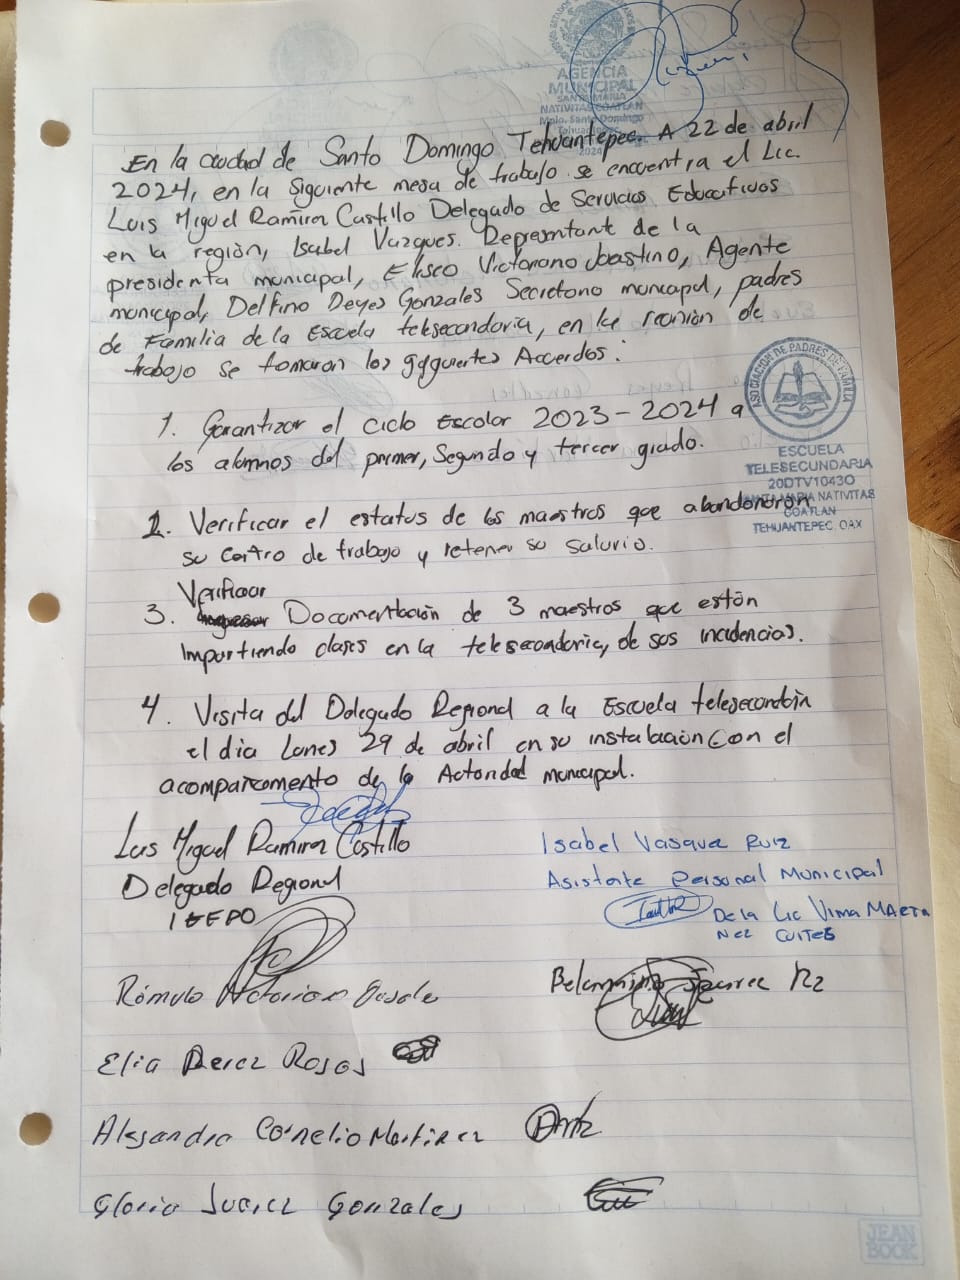 AGENCIA
MUNICIPAL
SANTA MARIA
NATIVITAS COATLAN
Mpio. Santo Domingo
Tehuantepec
2024
En la ciudad de Santo Domingo Tehuantepec. A 22 de abril
2024, en la siguiente mesa de trabajo se encuentra el Lic.
Luis Miguel Ramirez Castillo Delegado de Servicios Educativos
en la región, Isabel Vazques. Represntant de la
presidenta municipal, Eliseo Victoriano Joastino, Agente
municipal, Delfino Reyes Gonzales Secretario municipal, padres
de Familia de la Escuela telesecundaria, en la reunión de
trabajo se tomaron los Acuerdos:
1. Garantizar el ciclo Escolar 2023-2024 a
los alumnos del primer, Segundo y tercer grado.
2. Verificar el estatus de los maestros que abandonaron
su centro de trabajo y retener su salario.
Verificar
3. Documentación de 3 maestros que están
Impartiendo clases en la telesecundaria, de sus incidencias.
4. Visita del Delegado Regional a la Escuela
el dia Lunes 29 de abril en su instalación con el
de la Autoridad municipal.
ASOCIACION DE PADRES DE FAMILIA
ESCUELA
TELESECUNDARIA
20DTV1043O
SANTA MARIA NATIVITAS
COATLAN
TEHUANTEPEC, OAX
Luis Miguel Ramirez Castillo
Delegado Regional
IEEPO
Isabel Vasquez Ruiz
Asistente Personal Municipal
De la Lic Vima Marta
Nez
Rómulo
Juarez Rz
Elia Perez Rosas
Alejandra Cornelio Martinez
Gloria Juarez Gonzales
JEAN
BOOK